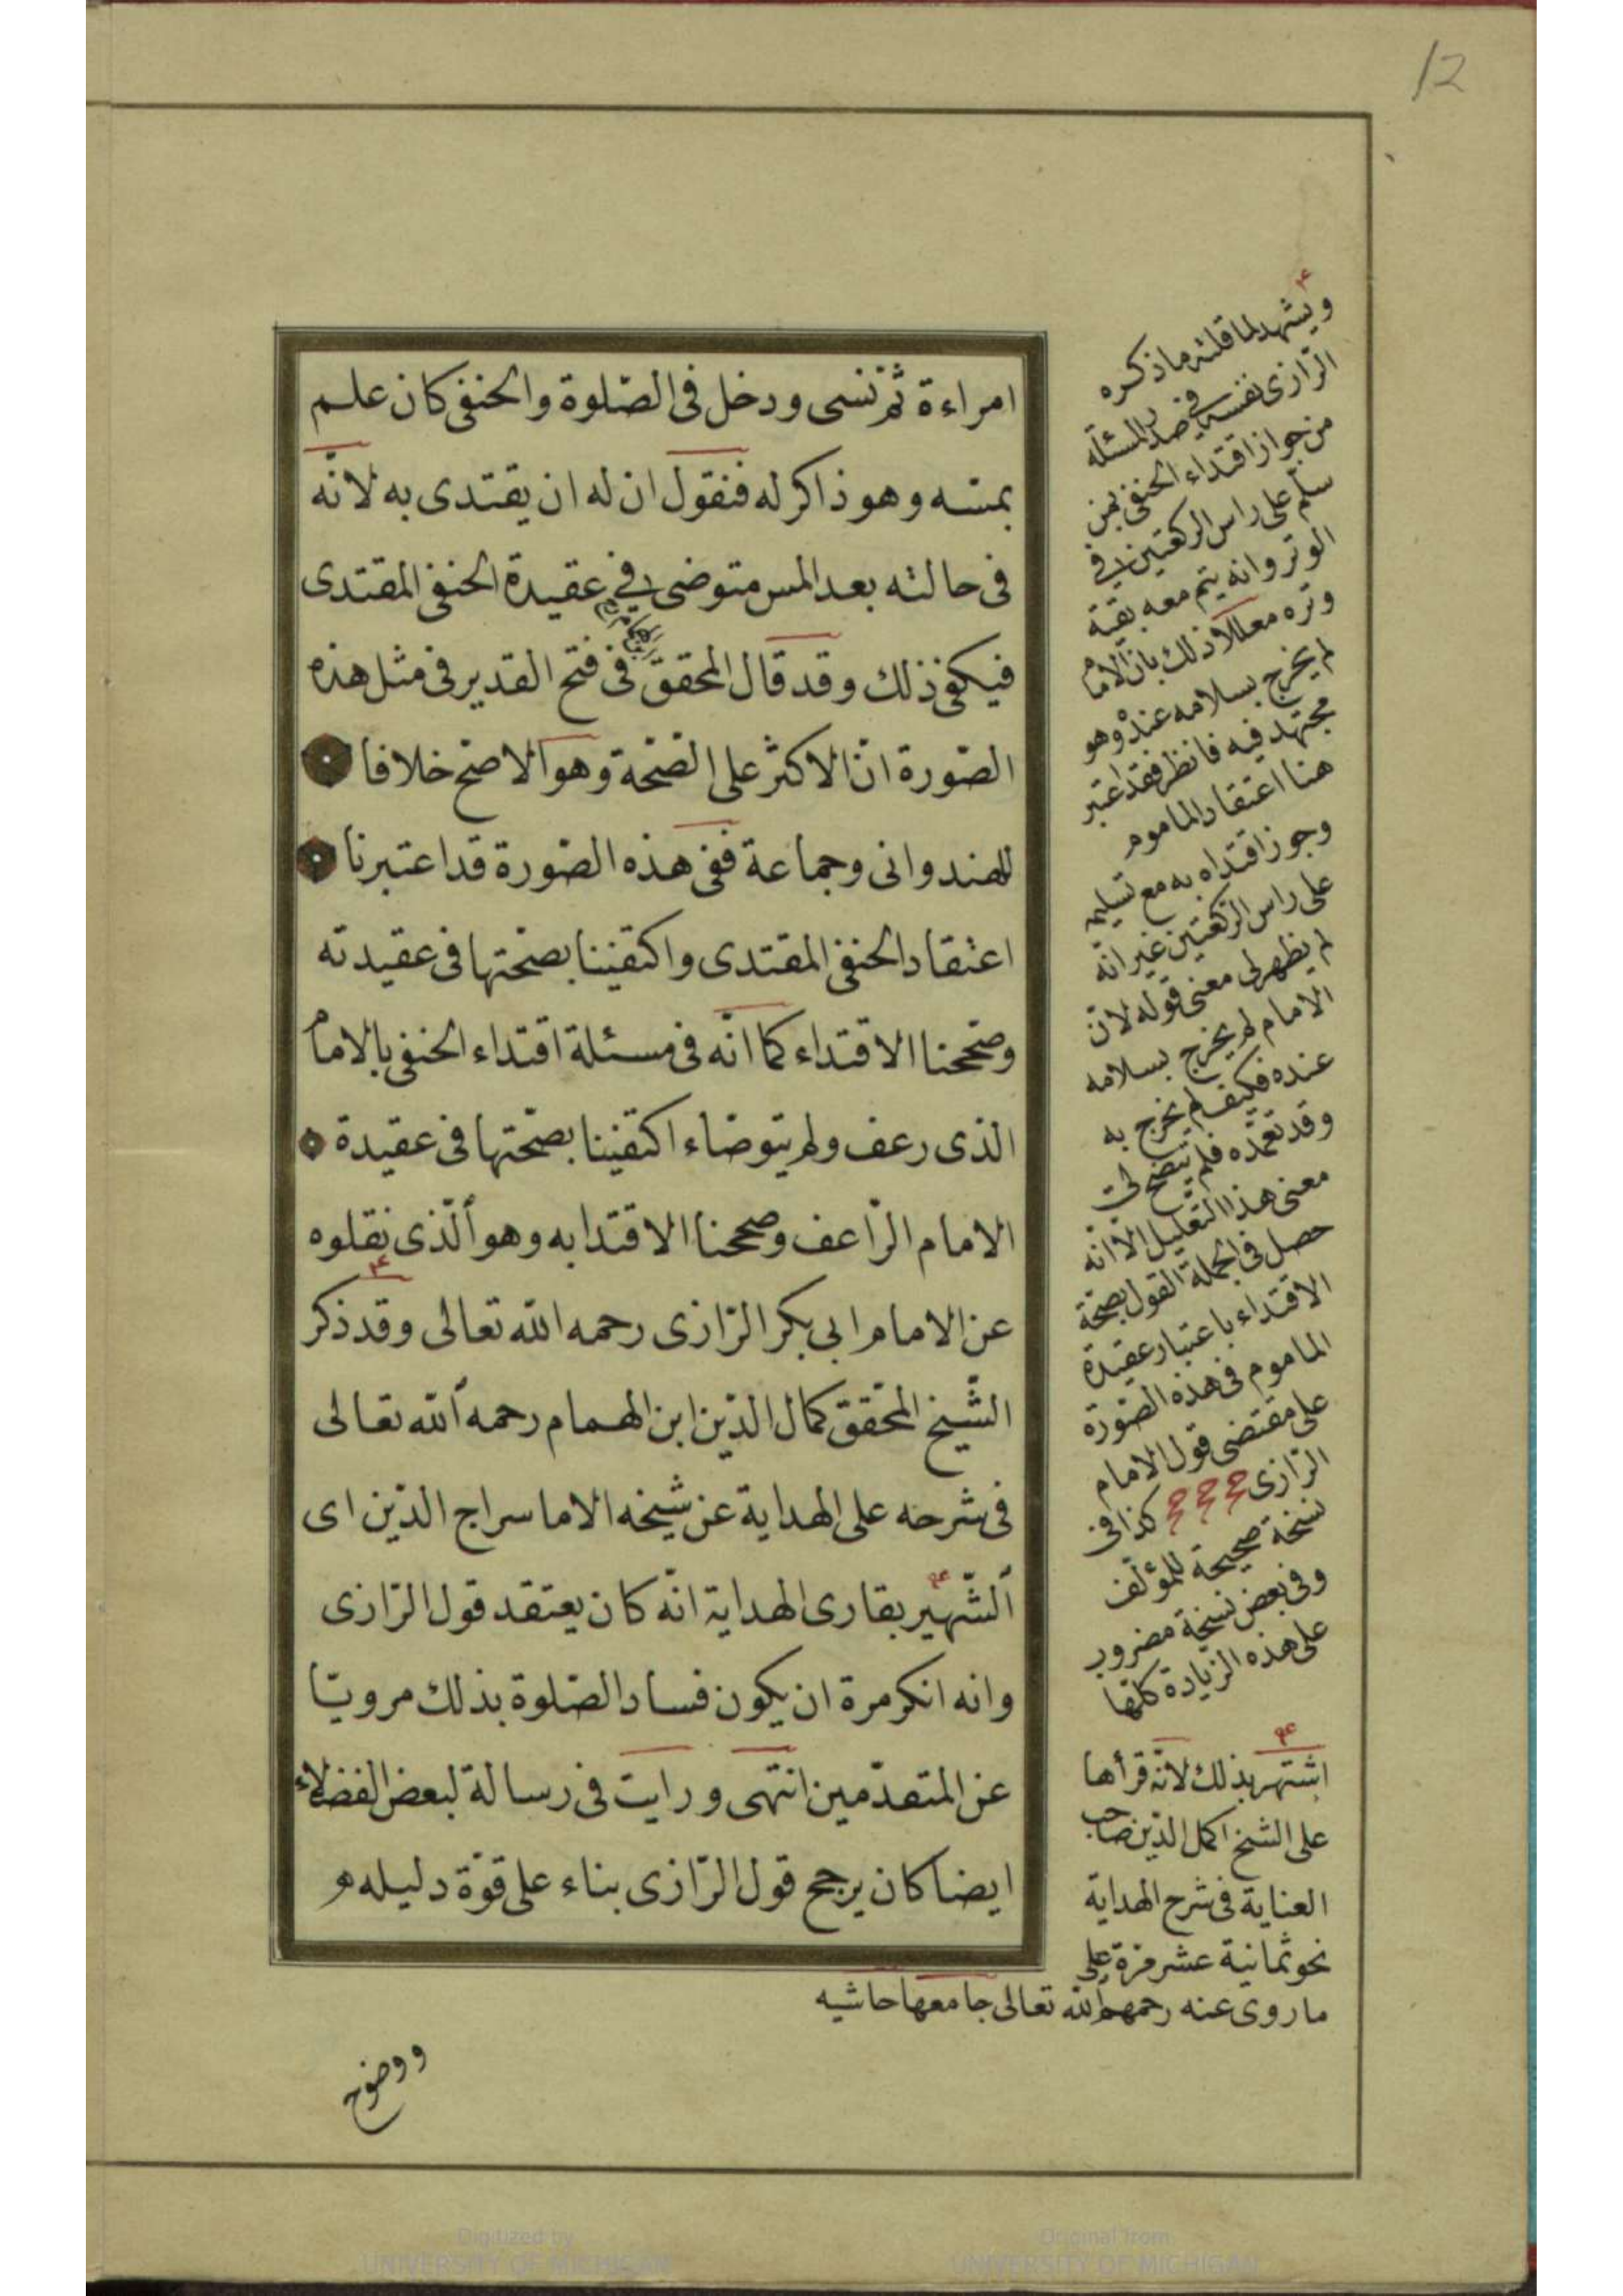 12
امراءة ثم نسى ودخل فى الصّلوة والحنفى كان علم
بمسّه وهو ذاكر له فنقول ان له ان يقتدى به لانّه
فى حالته بعد المس متوضى فى عقيدة الحنفى المقتدى
فيكفى ذلك وقد قال المحقق فى فتح القدير فى مثل هذه
الصّورة انّ الاكثر على الصّحة وهو الاصح خلافا
للهندوانى وجماعة ففى هذه الصّورة قد اعتبرنا
اعتقاد الحنفى المقتدى واكتفينا بصحّتها فى عقيدته
وصحّحنا الاقتداء كما انّه فى مسئلة اقتداء الحنفى بالامام
الذى رعف ولم يتوضاء اكتفينا بصحّتها فى عقيدة
الامام الرّاعف وصححنا الاقتدا به وهو الّذى نقلوه
عن الامام ابى بكر الرّازى رحمه الله تعالى وقد ذكر
الشّيخ المحقّق كمال الدّين ابن الهمام رحمه الله تعالى
فى شرحه على الهداية عن شيخه الاما سراج الدّين اى
الشّهير بقارى الهداية انّه كان يعتقد قول الرّازى
وانه انكر مرة ان يكون فساد الصّلوة بذلك مرويّا
عن المتقدّمين انتهى ورايت فى رسالة لبعض الفضلاء
ايضا كان يرجح قول الرّازى بناء على قوّة دليله
ويشهد لما قلته ما ذكره
الرّازى نفسه فى صدر المسئلة
من جواز اقتداء الحنفى بمن
سلّم على راس الركعتين فى
الوتر وانه يتم معه بقية
وتره معللا ذلك بانّ الامام
لم يخرج بسلامه عنده وهو
مجتهد فيه فانظر فقد اعتبر
هنا اعتقاد الماموم
وجوز اقتداه به مع تسليمه
على راس الرّكعتين غير انّه
لم يظهر لى معنى قوله لانّ
الامام لم يخرج بسلامه
عنده فكيف لم يخرج به
وقد تعمّده فلم يتضح لى
معنى هذا التّعليل الاّ انّه
حصل فى الجملة القول بصحّة
الاقتداء باعتبار عقيدة
الماموم فى هذه الصّورة
على مقتضى قول الامام
الرّازى كذا فى
نسخة صحيحة للمؤلّف
وفى بعض نسخة مضروب
على هذه الزّيادة كلّها
اشتهر بذلك لانّه قرأها
على الشيخ اكمل الدّين صاحب
العناية فى شرح الهداية
نحو ثمانية عشر مرّة على
ما روى عنه رحمهم الله تعالى جامعها حاشيه
ووضوح
Digitized by
UNIVERSITY OF MICHIGAN
Original from
UNIVERSITY OF MICHIGAN